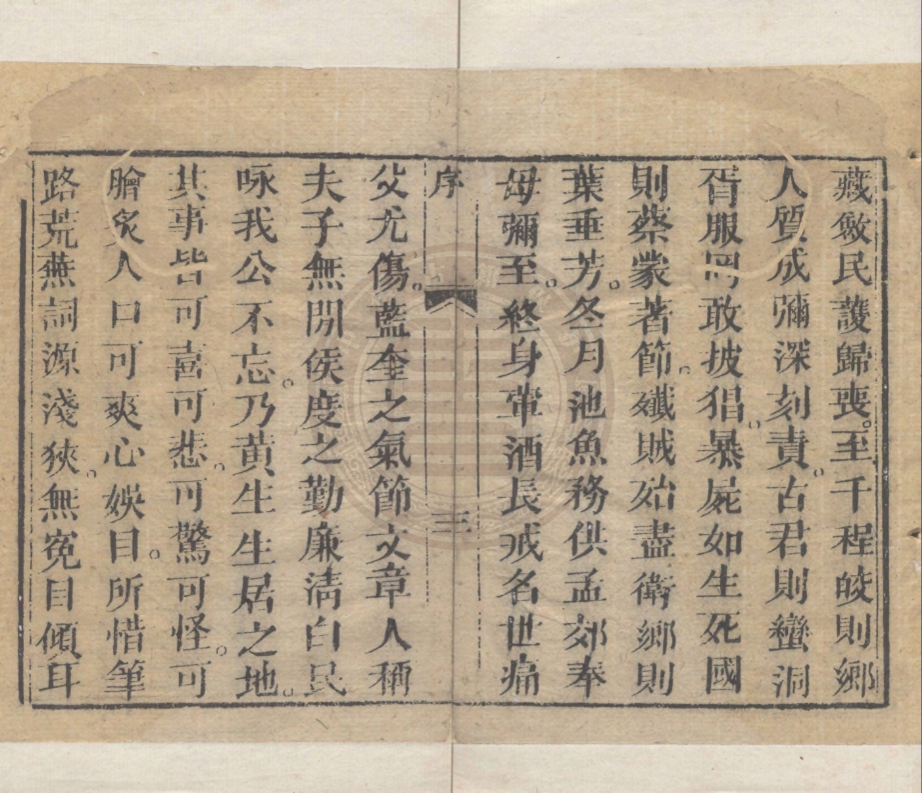 藏斂民護歸喪。至千程皎則鄉
人質成彌深刻責。古君則蠻洞
胥服罔敢披猖。暴屍如生死國
則蔡蒙著節。殲賊殆盡衛鄉則
葉垂芳。冬月池魚務供孟郊奉
母彌至。終身葷酒長戒名世痛
序
三
父尤傷。藍奎之氣節文章人稱
夫子無閒侯度之勤廉淸白民
咏我公不忘。乃黄生生居之地。
其事皆可喜可悲。可驚可怪。可
膾炙人口可爽心娛目。所惜筆
路荒蕪詞源淺狹。無寃目傾耳